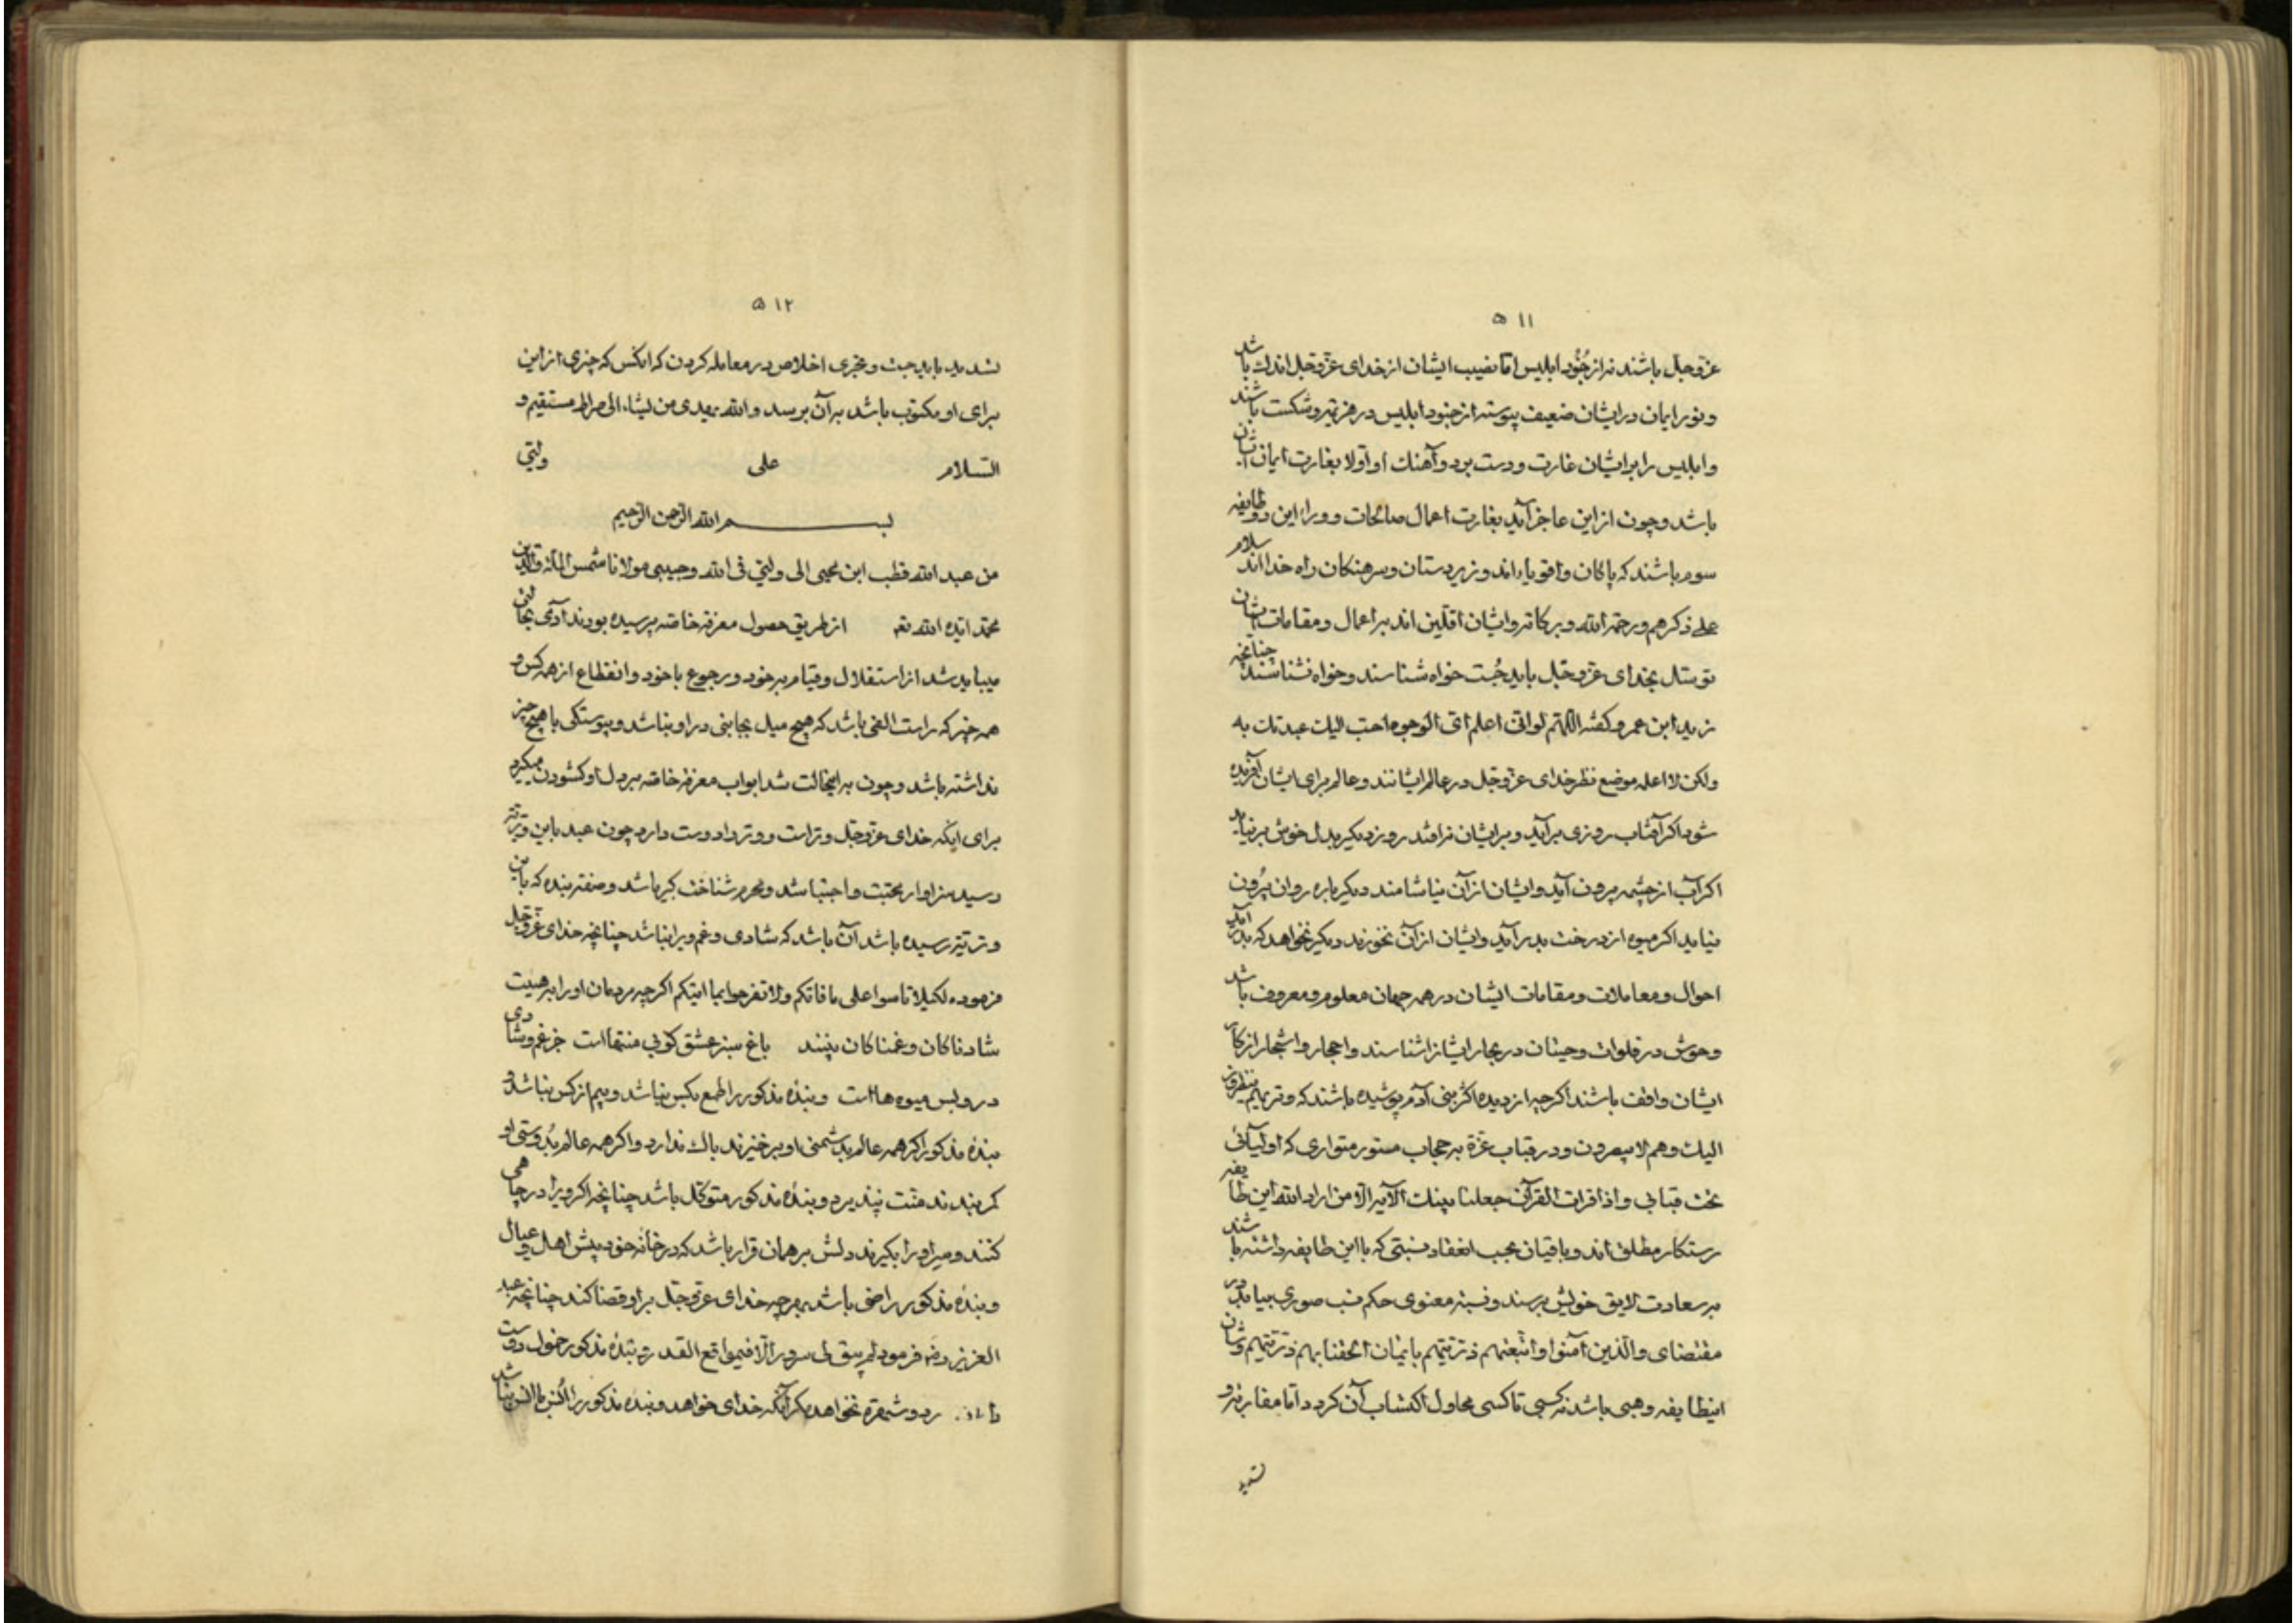 ٥١١
عزوجل باشند نه از جُنُود ابلیس اما نصیب ایشان از خدای عزوجل اندک باشد
و نور ایمان در ایشان ضعیف پیوسته از جنود ابلیس در هزیمت و شکست باشند
و ابلیس را بر ایشان غارت و دست برد و آهنک او اولا بغارت ایمان ایشان
باشد و چون از این عاجز آید بغارت اعمال صالحات و ورا این دو طایفه
سوم باشند که پاکان و اقویااند و زبردستان و سرهنکان راه خدااند سلام
علی ذکرهم و رحمة الله و برکاته و ایشان اقلین اند بر اعمال و مقامات ایشان
توسل بخدای عزوجل باید جُست خواه شناسند و خواه نشناسند چنانچه
زید ابن عمرو کفته اللهم لو انی اعلم ای الوجوه احب الیک عبدتک به
ولکن لا اعلمه موضع نظر خدای عزوجل در عالم ایشانند و عالم برای ایشان آفریده
شود اکر آفتاب روزی برآید و بر ایشان نرافتد روز دیکر بدل خوش برنیاید
اکر آب از چشمه برون آید و ایشان از آن نیاشامند دیکر باره روان بیُرون
نیاید اکر میوه از درخت بدر آید و ایشان از آن نخورند دیکر نخواهد که بدر آید
احوال و معاملات و مقامات ایشان در همه جهان معلوم و معروف باشد
وحوش در فلوات و حیتان در بحار ایشانرا شناسند و احجار و اشجار از کار
ایشان واقف باشند اکرچه از دیده اکثر بنی آدم پوشیده باشند که و تریهم ینظرون
الیک و هم لا یبصرون و در قباب عزّة به حجاب مستور متواری که اولیائی
تحت قبابی و اذا قرات القرآن جعلنا بینک الآیه الا من اراد الله این طایفه
رستکار مطلق اند و باقیان بحب انعقاد نسبتی که با این طایفه داشته باشند
بر سعادت لایق خویش برسند و نسبة معنوی حکم نسب صوری بیابد در
مقتضای والذین آمنوا و اتبعتهم ذریتهم بایمان الحقنا بهم ذریتهم و شان
اینطایفه وهبی باشد نه کسبی تا کسی محاول اکتساب آن کردد اما مقاربه و
تشدید
٥١٢
تشدید باید جست و تحری اخلاص در معامله کردن که انکس که چیزی از این
برای او مکتوب باشد به آن برسد و الله یهدی من یشاء الی صراط مستقیم و
السلام علی ولیّی
بسم الله الرحمن الرحیم
من عبد الله قطب ابن محیی الی ولیّی فی الله و حبیبی مولانا شمس الملة و الدین
محمد ایده الله تعه از طریق حصول معرفة خاصه پرسیده بودند آدمی بجائی
میباید شد از استقلال و قیام بر خود و رجوع باخود و انقطاع از همه کس و
همه چیز که راست الفی باشد که هیچ میل بجانبی در او نباشد و پیوستکی با هیچ چیز
نداشته باشد و چون به اینحالت شد ابواب معرفة خاصه بر دل او کشودن میکرد
برای اینکه خدای عزوجل وتراست و وتر را دوست دارد چون عبد باین وتریّة
رسید سزاوار محبت و اجتبا شد و محرم شناخت کبریا شد و صفت بنده که باین
وتریّة رسیده باشد آن باشد که شادی و غم ویرا نباشد چنانچه خدای عزوجل
فرموده لکیلا تاسوا علی ما فاتکم و لا تفرحوا بما اتیکم اکرچه مردمان او را بر هیئت
شادناکان و غمناکان بینند باغ سبز عشق کو بی منتهااست جز غم و شادی
در و بس میوه هااست و بندهٔ مذکور را طمع بکس نباشد و بیم از کس نباشد و
بندهٔ مذکور اکر همه عالم بدشمنی او برخیزند باک ندارد و اکر همه عالم بدُوستی او
کمر بندند منّت نپذیرد و بندهٔ مذکور متوکل باشد چنانچه اکر ویرا در چاهی
کنند و سر او را بکیرند دلش بر همان قرار باشد که در خانه خود پیش اهل و عیال
و بندهٔ مذکور راضی باشد بهرچه خدای عزوجل بر او قضا کند چنانچه عبد
العزیز رضه فرمود لم یبق لی سرور الا فی مواقع القدر و بندهٔ مذکور خول دوست
رد و شهرة نخواهد مکر آنکه خدای خواهد و بندهٔ مذکور را اُنس با انس نباشد